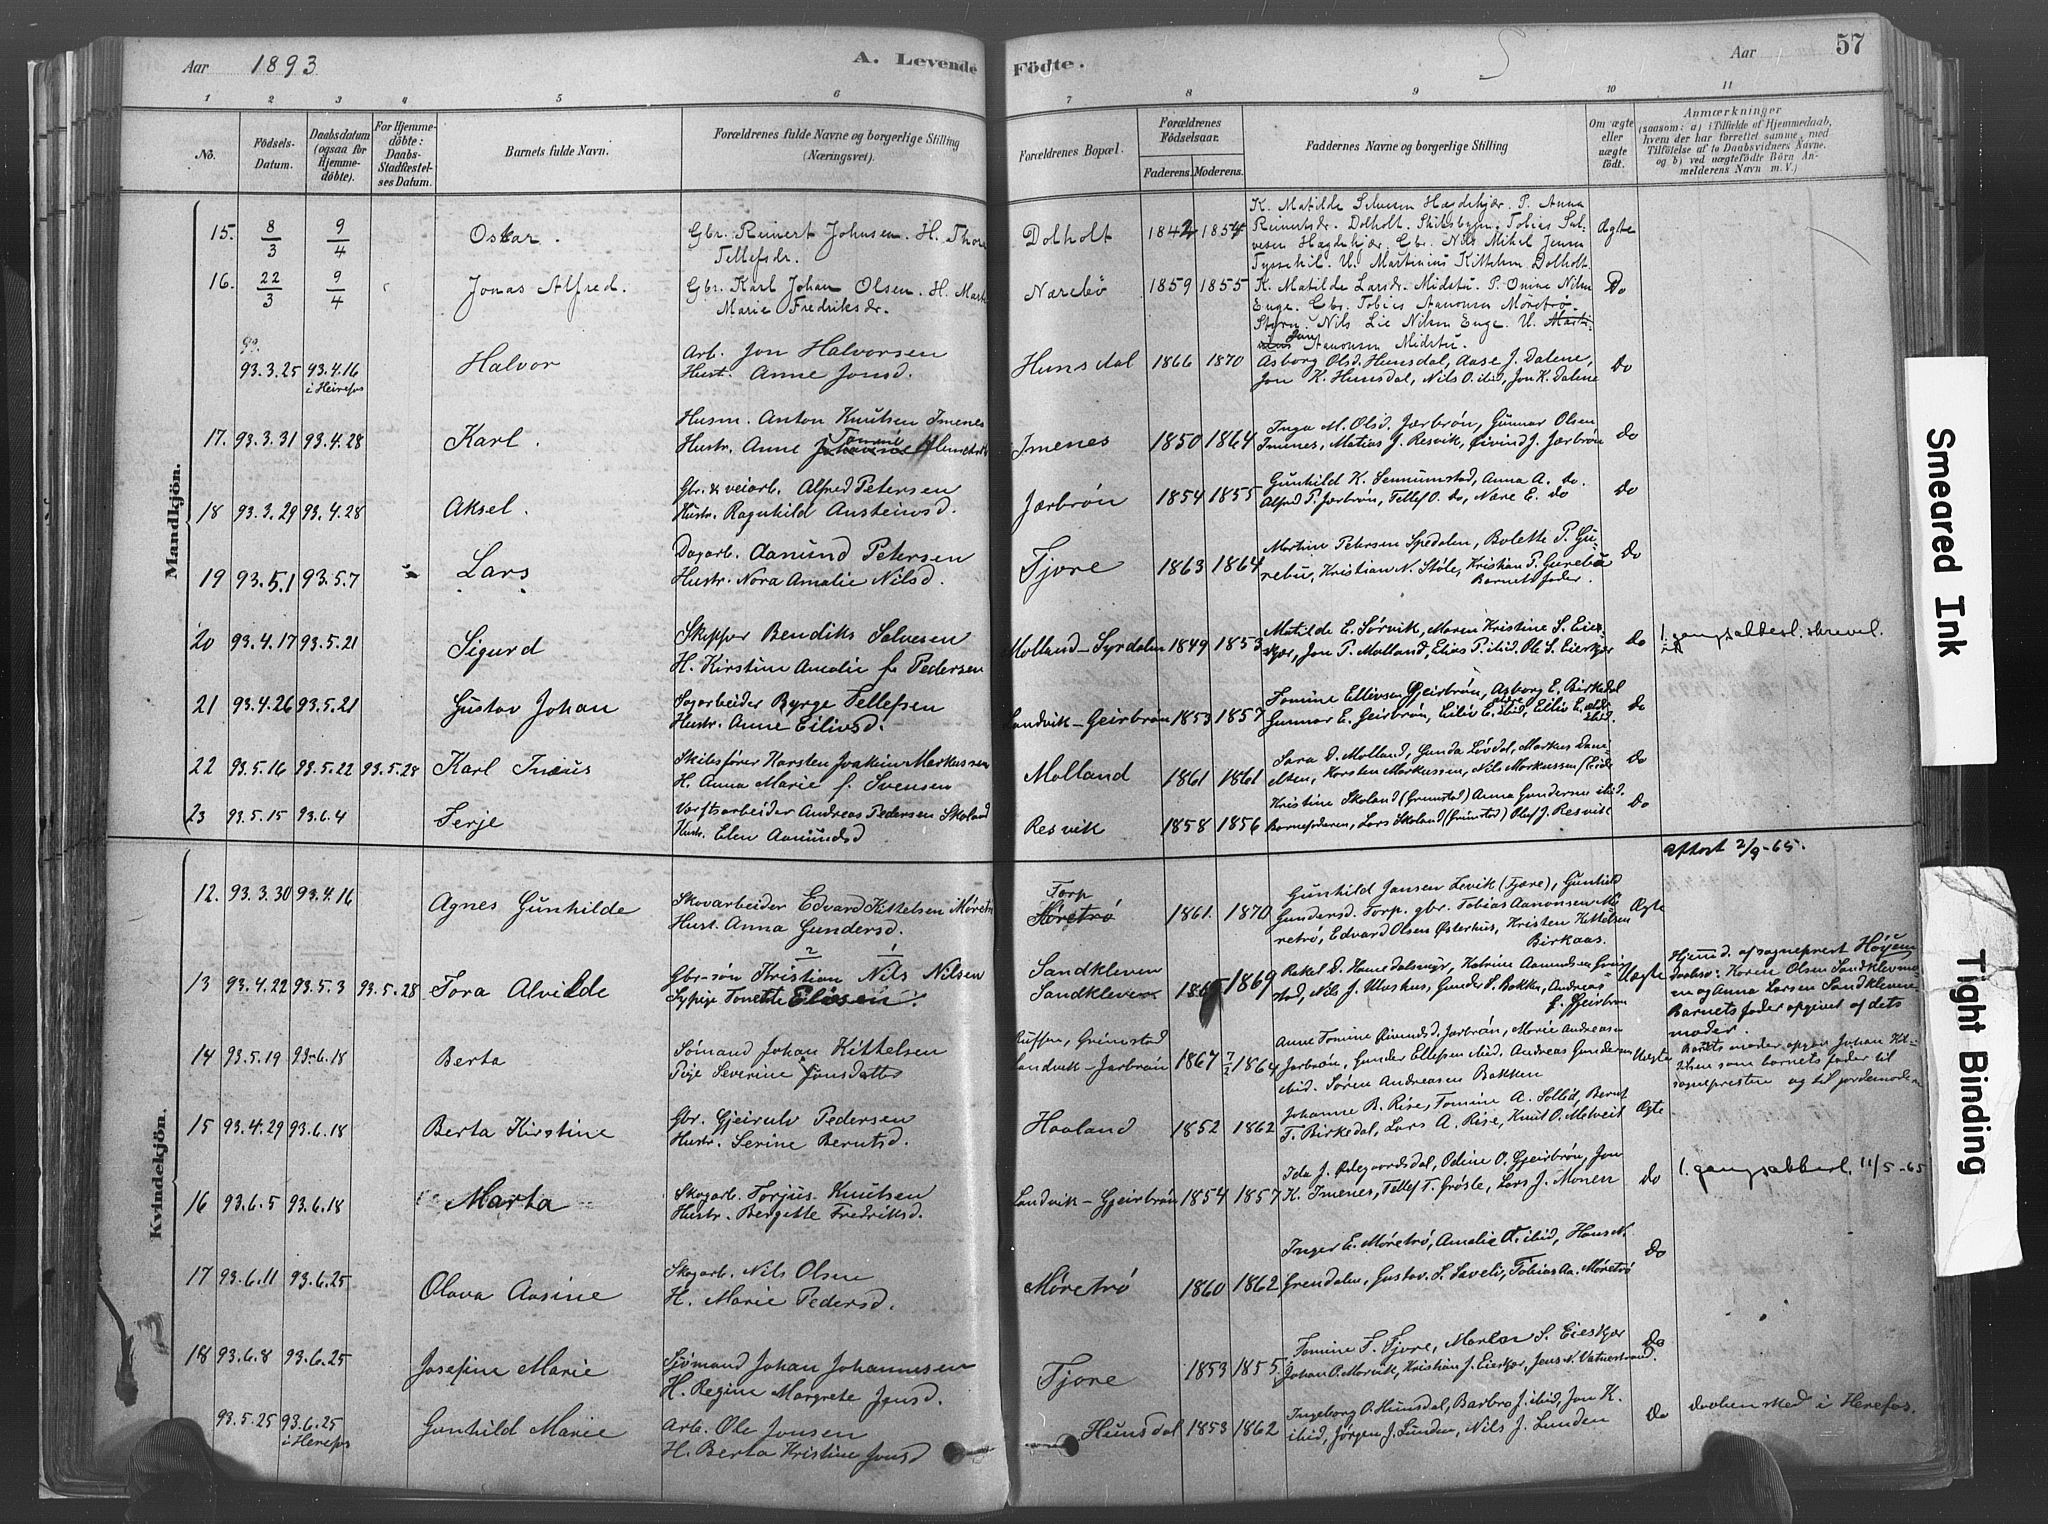 Aar 1893 A. Levende Födte. Aar 57
1 2 3 4 5 6 7 8 9 10 11
No.
Födsels-
Datum.
Daabsdatum
(ogsaa for
Hjemme-
döbte).
For Hjemme-
döbte:
Daabs-
Stadfæstel-
ses Datum.
Barnets fulde Navn.
Forældrenes fulde Navne og borgerlige Stilling
(Næringsvei).
Forældrenes Bopæl.
Forældrenes
Födselsaar.
Faderens. Moderens.
Faddernes Navne og borgerlige Stilling
Om ægte
eller
uægte
födt.
Anmærkninger
(saasom: a) i Tilfælde af Hjemmedaab,
hvem der har forrettet samme, med
Tilföielse af to Daabsvidners Navne,
og b) ved uægtefödte Börn An-
melderens Navn m.V.)
Mandkjön.
15. 8/3 9/4 Oskar. Gbr. Reinert Johnsen. H. Thora
Tellefsdr.
Dolholt 1842 1854
K. Matilde Salvesen Hægdekjær. P. Anna
Reinertsdr. Dolholt. Skibsbygm. Tobias Sal-
vesen Hægdekjær. Gbr. Nils Mikel Jensen
U. Martinius Kittelsen Dolholt.
Ægte
16. 22/3 9/4 Jonas Alfred. Gbr. Karl Johan Olsen. H.
Marie Fredriksdr.
Nærebø 1859 1855
K. Matilde Larsdr. Midstu. P. Nilsen
Enge. Gbr. Tobias Aanonsen Møretrø
Nils Lie Nilsen Enge. U.
Aanonsen Midstu.
Do
93.3.25 93.4.16
i Heirefos
Halvor
Arb. Jon Halvorsen
Hust. Anne Jonsd.
Hunsdal 1866 1870
Asborg Olsd. Hunsdal, Aase J. Dalene,
Jon K. Hunsdal, Nils O. ibid, Jon K. Dalene
Do
17. 93.3.31 93.4.28 Karl.
Husm. Anton Knutsen Imenes
Hustr. Anne Tomine
Imenes 1850 1864
Inga M. Olsd. Jærbrøn, Gunnar Olsen
Imenes, Matias J. Resvik, Øivind J. Jærbrøn
Do
18 93.3.29 93.4.28 Aksel.
Gbr. & veiarb. Alfred Petersen
Hustr. Ragnhild Austeinsd.
Jærbrøn 1854 1855
Gunhild K. Sennumstad, Anna A. do.
Alfred P. Jærbrøn, Tellef O. do, Nære E. do
Do
19 93.5.1 93.5.7 Lars
Dagarb. Aanund Petersen
Hustr. Nora Amalie Nilsd.
Fjore 1863 1864
Martine Petersen Spedalen, Bolette P. Gu-
rebu, Kristian N. Støle, Kristian P. Gurebu
Barnets fader.
Do
20 93.4.17 93.5.21 Sigurd
Skipper Bendiks Salvesen
H. Kirstine Amalie f. Pedersen
Molland-Syrdalen 1849 1853
Matilde E. Sørvik, Maren Kristine S. Eies-
kjær, Jon P. Molland, Elias P. ibid. Ole S. Eieskjær
Do
21 93.4.26 93.5.21 Gustav Johan
Sagarbeider Byrge Tellefsen
Hustr. Anne Eilivsd.
Landvik-Geirbrøn 1853 1857
Tomine Ellivsen Gjeirbrøn, Asborg E. Birkedal
Gunnar E. Geirbrøn, Eiliv E. ibid, Eiliv E. ældre
ibid.
Do
22 93.5.16 93.5.22 93.5.28 Karl Inæus
Skibsfører Karsten Joakim Markussen
H. Anna Marie f. Svensen
Molland 1861 1861
Sara D. Molland, Gunda Løvdal, Markus Dani-
elsen, Karsten Markussen, Nils Markussen (Eide
Do
23 93.5.15 93.6.4 Terje
Verftsarbeider Andreas Pedersen Skoland
Hustr. Elen Aamundsd
Resvik 1858 1856
Kristine Skoland (Grimstad) Anna Gundersen ibid.
Barnefaderen, Lars Skoland (Grimstad) Oluf J. Resvik
Do
Kvindekjön.
12. 93.3.30 93.4.16 Agnes Gunhilde
Skovarbeider Edvard Kittelsen Møretrø
Hust. Anna Gundersd.
Torp
Møretrø
1861. 1870
Gunhild Jansen Levik (Fjore), Gunhild
Gundersd. Torp. gbr. Tobias Aanonsen Mø-
retrø, Edvard Olsen Østerhus, Kristen Kittelsen
Birkaas.
Ægte
attest 2/9-65.
13 93.4.22 93.5.3 93.5.28 Tora Alvilde
Gbr-søn Kristian Nils Nilsen
Sypige Tonette Eliesen.
Sandkleven
Sandkleven
1869
Rakel D. Homedalsmyr, Katrine Aamundsen
Nils J. Uushus, Gunder S. Bakke, Andreas
E. Gjeirbrøn
Uægte
Hjemd. af sogneprest Høyem
daabsv: Karen Olsen Sandkleven
og Anna Larsen Sandkleven
Barnets fader opgivet af dets
moder.
14 93.5.19 93.6.18 Berta
Sømand Johan Kittelsen
Pige Severine Jonsdatter
Grimstad
Landvik-Jærbrøn 1867 1864
Anne Tomine Øivindsd. Jærbrøn, Marie Andreasen
Jærbrøn, Gunder Ellefsen ibid. Andreas Gundersen
ibid. Søren Andreasen Bakken
Uægte
Barnets moder opgav Johan Kit-
telsen som barnets fader til
sognepresten og til jordemoderen
15 93.4.29 93.6.18 Berta Kirstine
Gbr. Gjeirulv Pedersen
Hustr. Serine Berntsd.
Haaland 1852 1862
Johanne B. Rise, Tomine A. Bernt
T. Birkedal, Lars A. Rise, Knut O. Molveit
Ægte
16 93.6.5 93.6.18 Marta
Skogarb. Torjus Knutsen
Hustr. Bergitte Fredriksd.
Landvik-Gjeirbrøn 1854 1857
Ida J. Ødegaardsdal, Odine O. Gjeirbrøn, Jon
K. Imenes, Tellef T. Grøsle, Lars J. Monen
Do
11/5-65
17 93.6.11 93.6.25 Olava Aasine
Skogarb. Nils Olsen
H. Marie Pedersd.
Møretrø 1860 1862
Inger E. Møretrø, Amalie O. ibid, Hans N.
Grendalen, Gustav S. Saveli, Tobias Aa. Møretrø
Do
18 93.6.8 93.6.25 Josefine Marie
Sjømand Johan Johannesen
H. Regine Margrete Jonsd.
Fjore 1853 1855
Tomine F. Fjore, Maren S. Eieskjær
Johan O. Morvik, Kristian J. Eieskjær, Jens N. Vatnestrand.
Do
93.5.25 93.6.25
i Herefos
Gunhild Marie
Arb. Ole Jonsen
H. Berta Kristine Jonsd
Hunsdal 1853 1862
Ingeborg O. Hunsdal, Barbro J. ibid, Jon K.
ibid, Jørgen J. Lunden, Nils J. Lunden
Do
daaben sked i Herefos.
Smeared Ink
Tight Binding